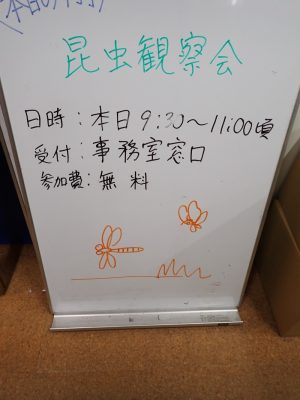 昆虫観察会
日時：本日9:30～11:00頃
受付：事務室窓口
参加費：無料